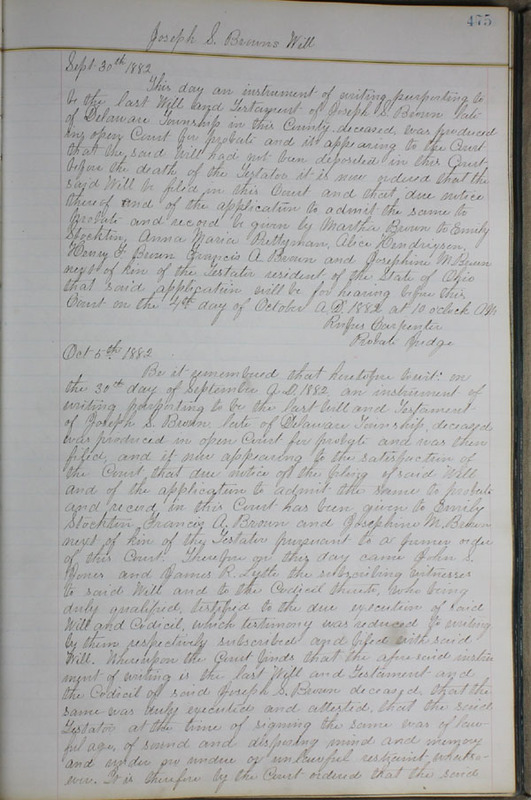 475
Joseph S. Browns Will
Sept 30th 1882
This day an instrument of writing purporting to
be the last Will and Testament of Joseph S. Brown late
of Delaware Township in this County deceased, was produced
in open Court for probate and it appearing to the Court
that the said Will had not been deposited in this Court
before the death of the Testator it is now ordered that the
said Will be filed in this Court and that due notice
thereof and of the application to admit the same to
probate and record be given by Martha Brown to Emily
Stockton, Anna Maria Prettyman, Alice Hendrixsen,
Henry F. Brown Francis A Brown and Josephine M Brown
next of kin of the Testator resident of the State of Ohio
that said application will be for hearing before this
Court on the 4th day of October A.D. 1882 at 10 oclock A.M.
Rufus Carpenter
Probate Judge
Oct 5th 1882
Be it remembered that heretofore towit: on
the 30th day of September A.D. 1882, an instrument of
writing purporting to be the last Will and Testament
of Joseph S. Brown late of Delaware Township, deceased
was produced in open Court for probate and was then
filed, and it now appearing to the satisfaction of
the Court, that due notice of the filing of said Will
and of the application to admit the same to probate
and record in this Court has been given to Emily
Stockton, Francis A. Brown and Josephine M. Brown
next of kin of the Testator pursuant to a former order
of this Court. Therefore on this day came John S.
Jones and James R. Lytle the subscribing witnesses
to said Will and to the Codicil thereto, who being
duly qualified, testified to the due execution of said
Will and Codicil, which testimony was reduced to writing
by them respectively subscribed and filed with said
Will. Whereupon the Court finds that the aforesaid instru
ment of writing is the last Will and Testament and
the Codicil of said Joseph S. Brown deceased, that the
same was duly executed and attested, that the said
Testator at the time of signing the same was of law
ful age, of sound and disposing mind and memory
and under no undue or unlawful restraint, whatso-
ever. It is therefore by the Court ordered that the said